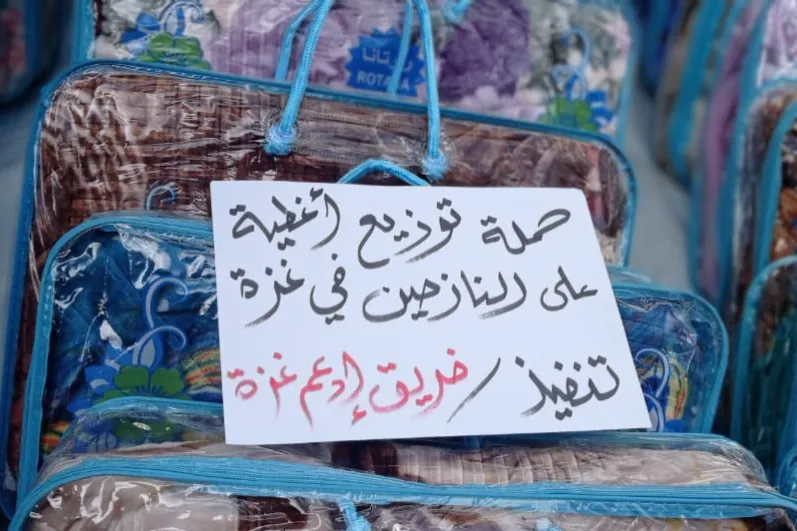 روتانا
ROTANA
حملة توزيع أغطية
على النازحين في غزة
تنفيذ / فريق إدعم غزة